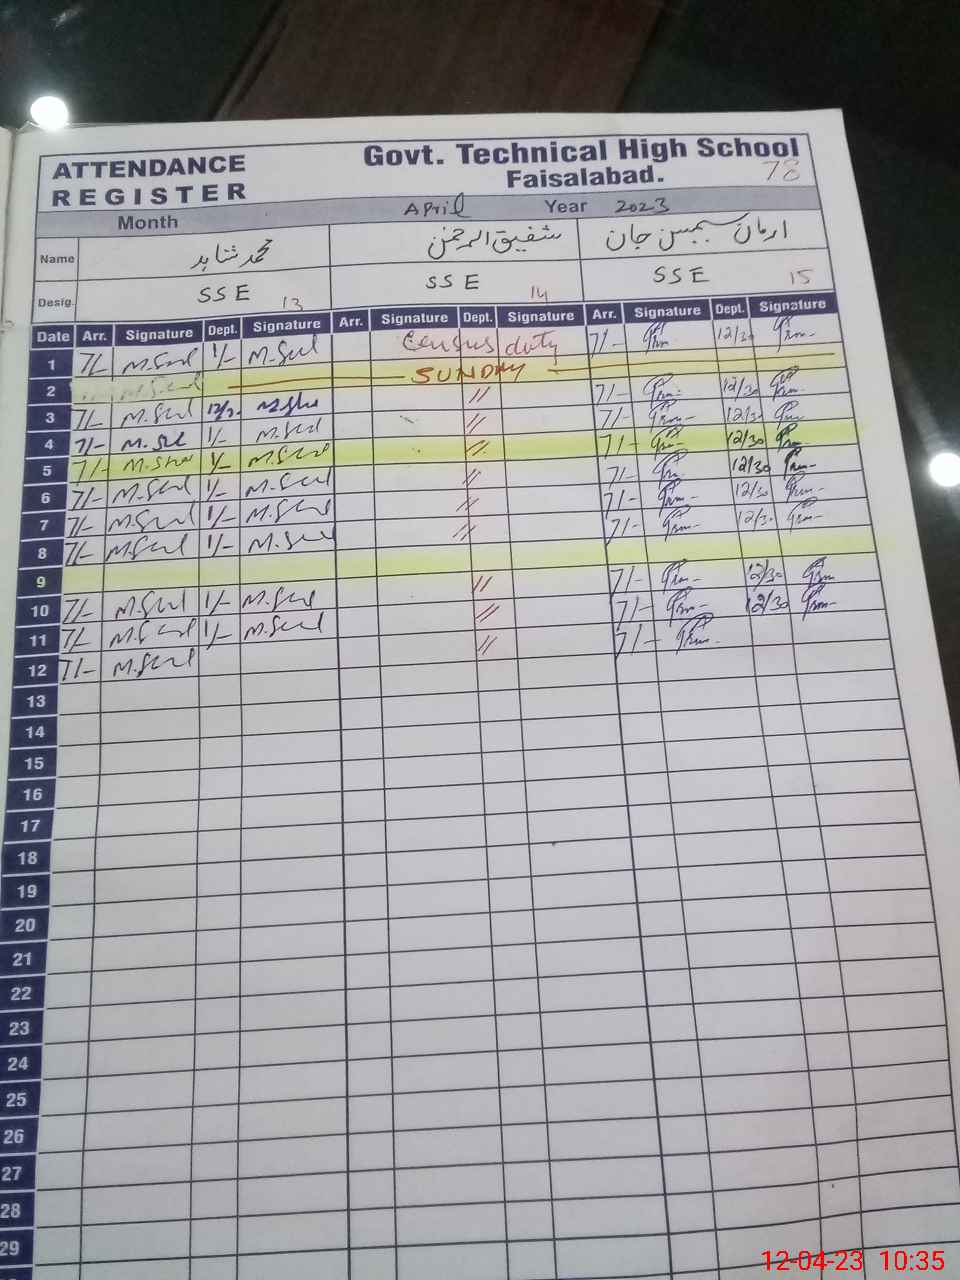 ATTENDANCE REGISTER
Govt. Technical High School
Faisalabad.
78
Month April Year 2023
Name محمد شاہد شفیق الرحمٰن ارمان سیمسن جان
Desig. SSE 13 SSE 14 SSE 15
Date Arr. Signature Dept. Signature Arr. Signature Dept. Signature Arr. Signature Dept. Signature
1 7/- 1/- Census duty 7/- 12/30
2 SUNDAY
3 7/- 12/30 // 7/- 12/30
4 7/- 1/- // 7/- 12/30
5 7/- 1/- // 7/- 12/30
6 7/- 1/- // 7/- 12/30
7 7/- 1/- // 7/- 12/30
8 7/- 1/- // 7/- 12/30
9
10 7/- 1/- // 7/- 12/30
11 7/- 1/- // 7/- 12/30
12 7/- // 7/-
13
14
15
16
17
18
19
20
21
22
23
24
25
26
27
28
29
12-04-23 10:35